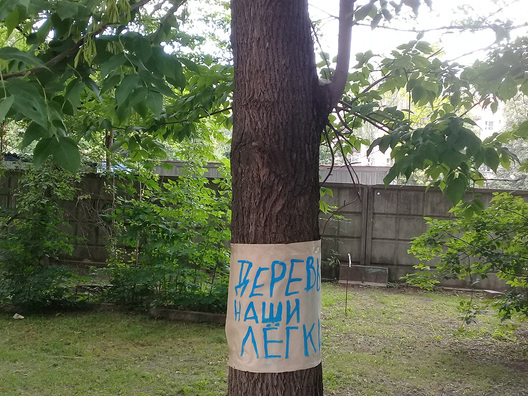 ДЕРЕВЬ
НАШИ
ЛЁГКИ